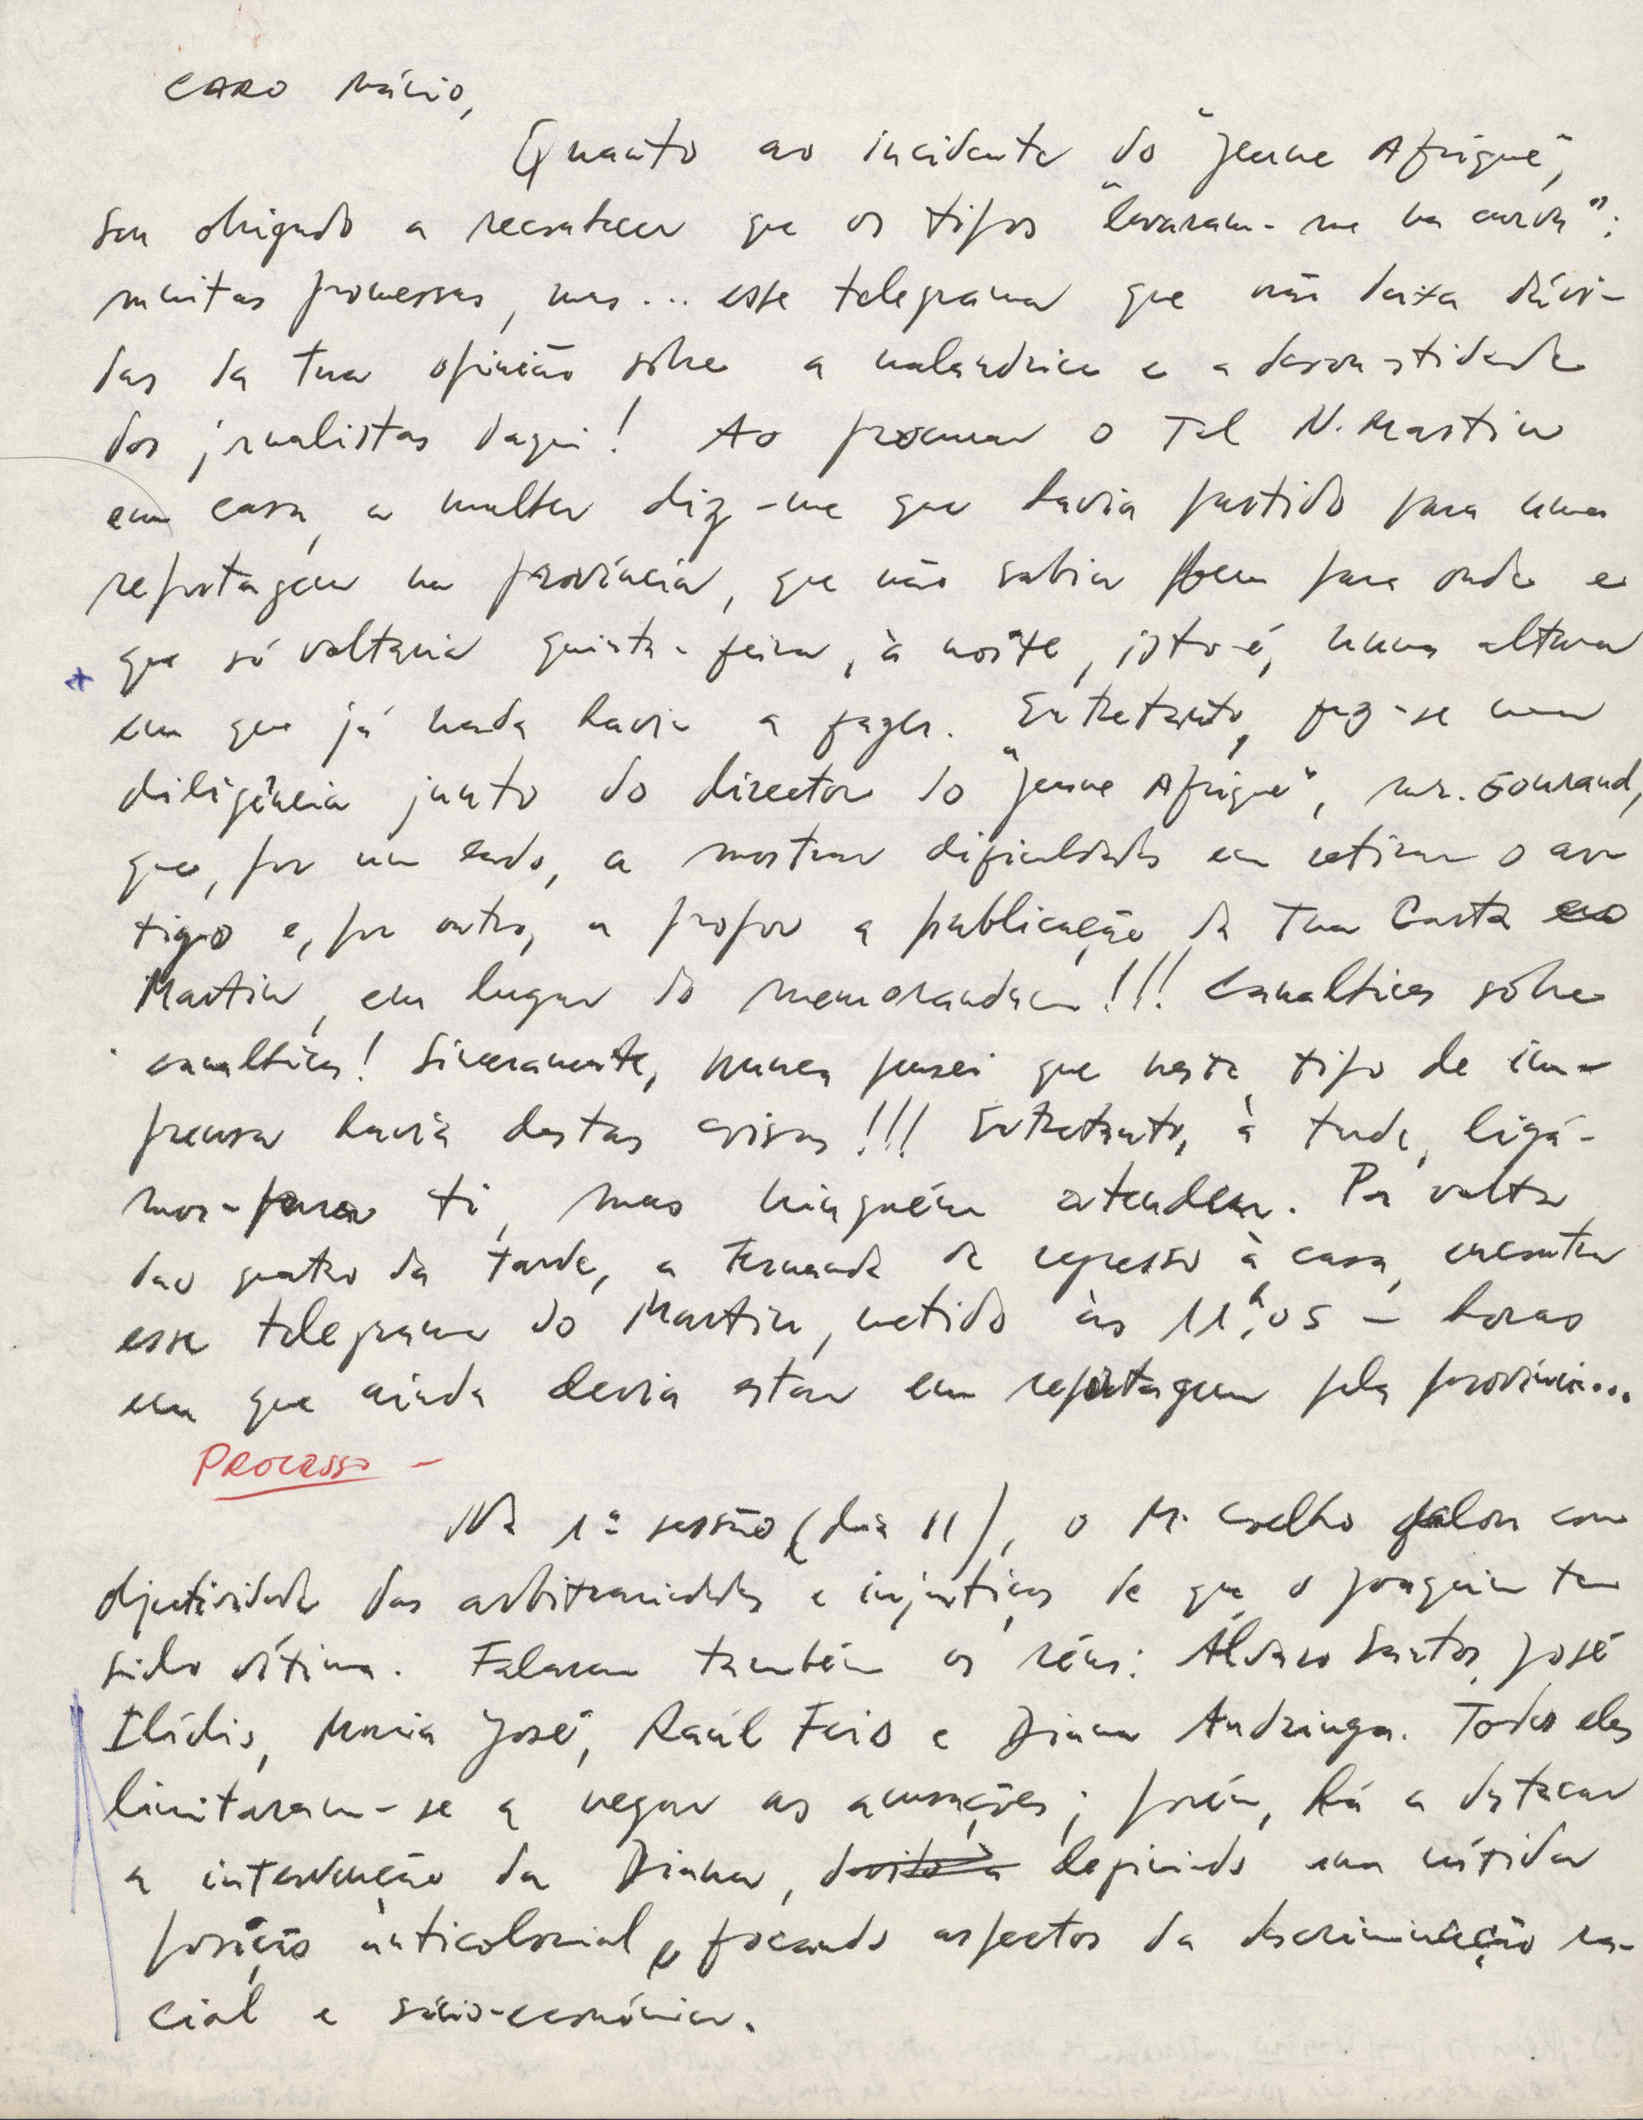 CARO Mário,
Quanto ao incidente do "Jeune Afrique",
sou obrigado a reconhecer que os tipos "levaram-me na curva":
muitas promessas, mas... esse telegrama que não deixa dúvi-
das da tua opinião sôbre a malandrice e a desonestidade
dos jornalistas daqui! Ao procurar o tal N. Martin
em casa, a mulher diz-me que havia partido para uma
reportagem na província, que não sabia bem para onde e
que só voltaria quinta-feira, à noite, isto é, numa altura
em que já nada havia a fazer. Entretanto, fez-se uma
diligência junto do director do "Jeune Afrique", mr. Gourand,
que, por um lado, a mostrar dificuldades em retirar o ar
tigo e, por outro, a propor a publicação da tua Carta ao
Martin, em lugar do memorandum!!! Canalhices sôbre
canalhices! Sinceramente, nunca pensei que neste tipo de im-
prensa havia destas coisas!!! Entretanto, à tarde, ligá-
mos-para ti, mas ninguém atendeu. Por volta
das quatro da tarde, a Fernanda de regresso à casa, encontra
esse telegrama do Martin, metido às 11h,05 - horas
em que ainda devia estar em reportagem pela província...
PROCESSO -
Na 1ª sessão (dia 11), o M. Coelho falou com
objectividade das arbitrariedades e injustiças de que o Joaquim tem
sido vítima. Falaram também os réus: Álvaro Santos, José
Ilídio, Maria José, Raúl Feio e Diana Andringa. Todos eles
limitaram-se a negar as acusações; porém, há a destacar
a intervenção da Diana, definindo uma nítida
posição anticolonial, e focando aspectos da descriminação ra-
cial e sócio-económica.